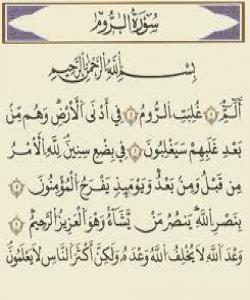 سُورَةُ الرُّومِ
بِسْمِ اللَّهِ الرَّحْمَٰنِ الرَّحِيمِ
الٓمٓ ١ غُلِبَتِ الرُّومُ ٢ فِىٓ أَدْنَى الْأَرْضِ وَهُم مِّنۢ
بَعْدِ غَلَبِهِمْ سَيَغْلِبُونَ ٣ فِى بِضْعِ سِنِينَ ۗ لِلَّهِ الْأَمْرُ
مِن قَبْلُ وَمِنۢ بَعْدُ ۚ وَيَوْمَئِذٍ يَفْرَحُ الْمُؤْمِنُونَ ٤
بِنَصْرِ اللَّهِ ۚ يَنصُرُ مَن يَشَآءُ ۖ وَهُوَ الْعَزِيزُ الرَّحِيمُ ٥
وَعْدَ اللَّهِ ۖ لَا يُخْلِفُ اللَّهُ وَعْدَهُۥ وَلَٰكِنَّ أَكْثَرَ النَّاسِ لَا يَعْلَمُونَ